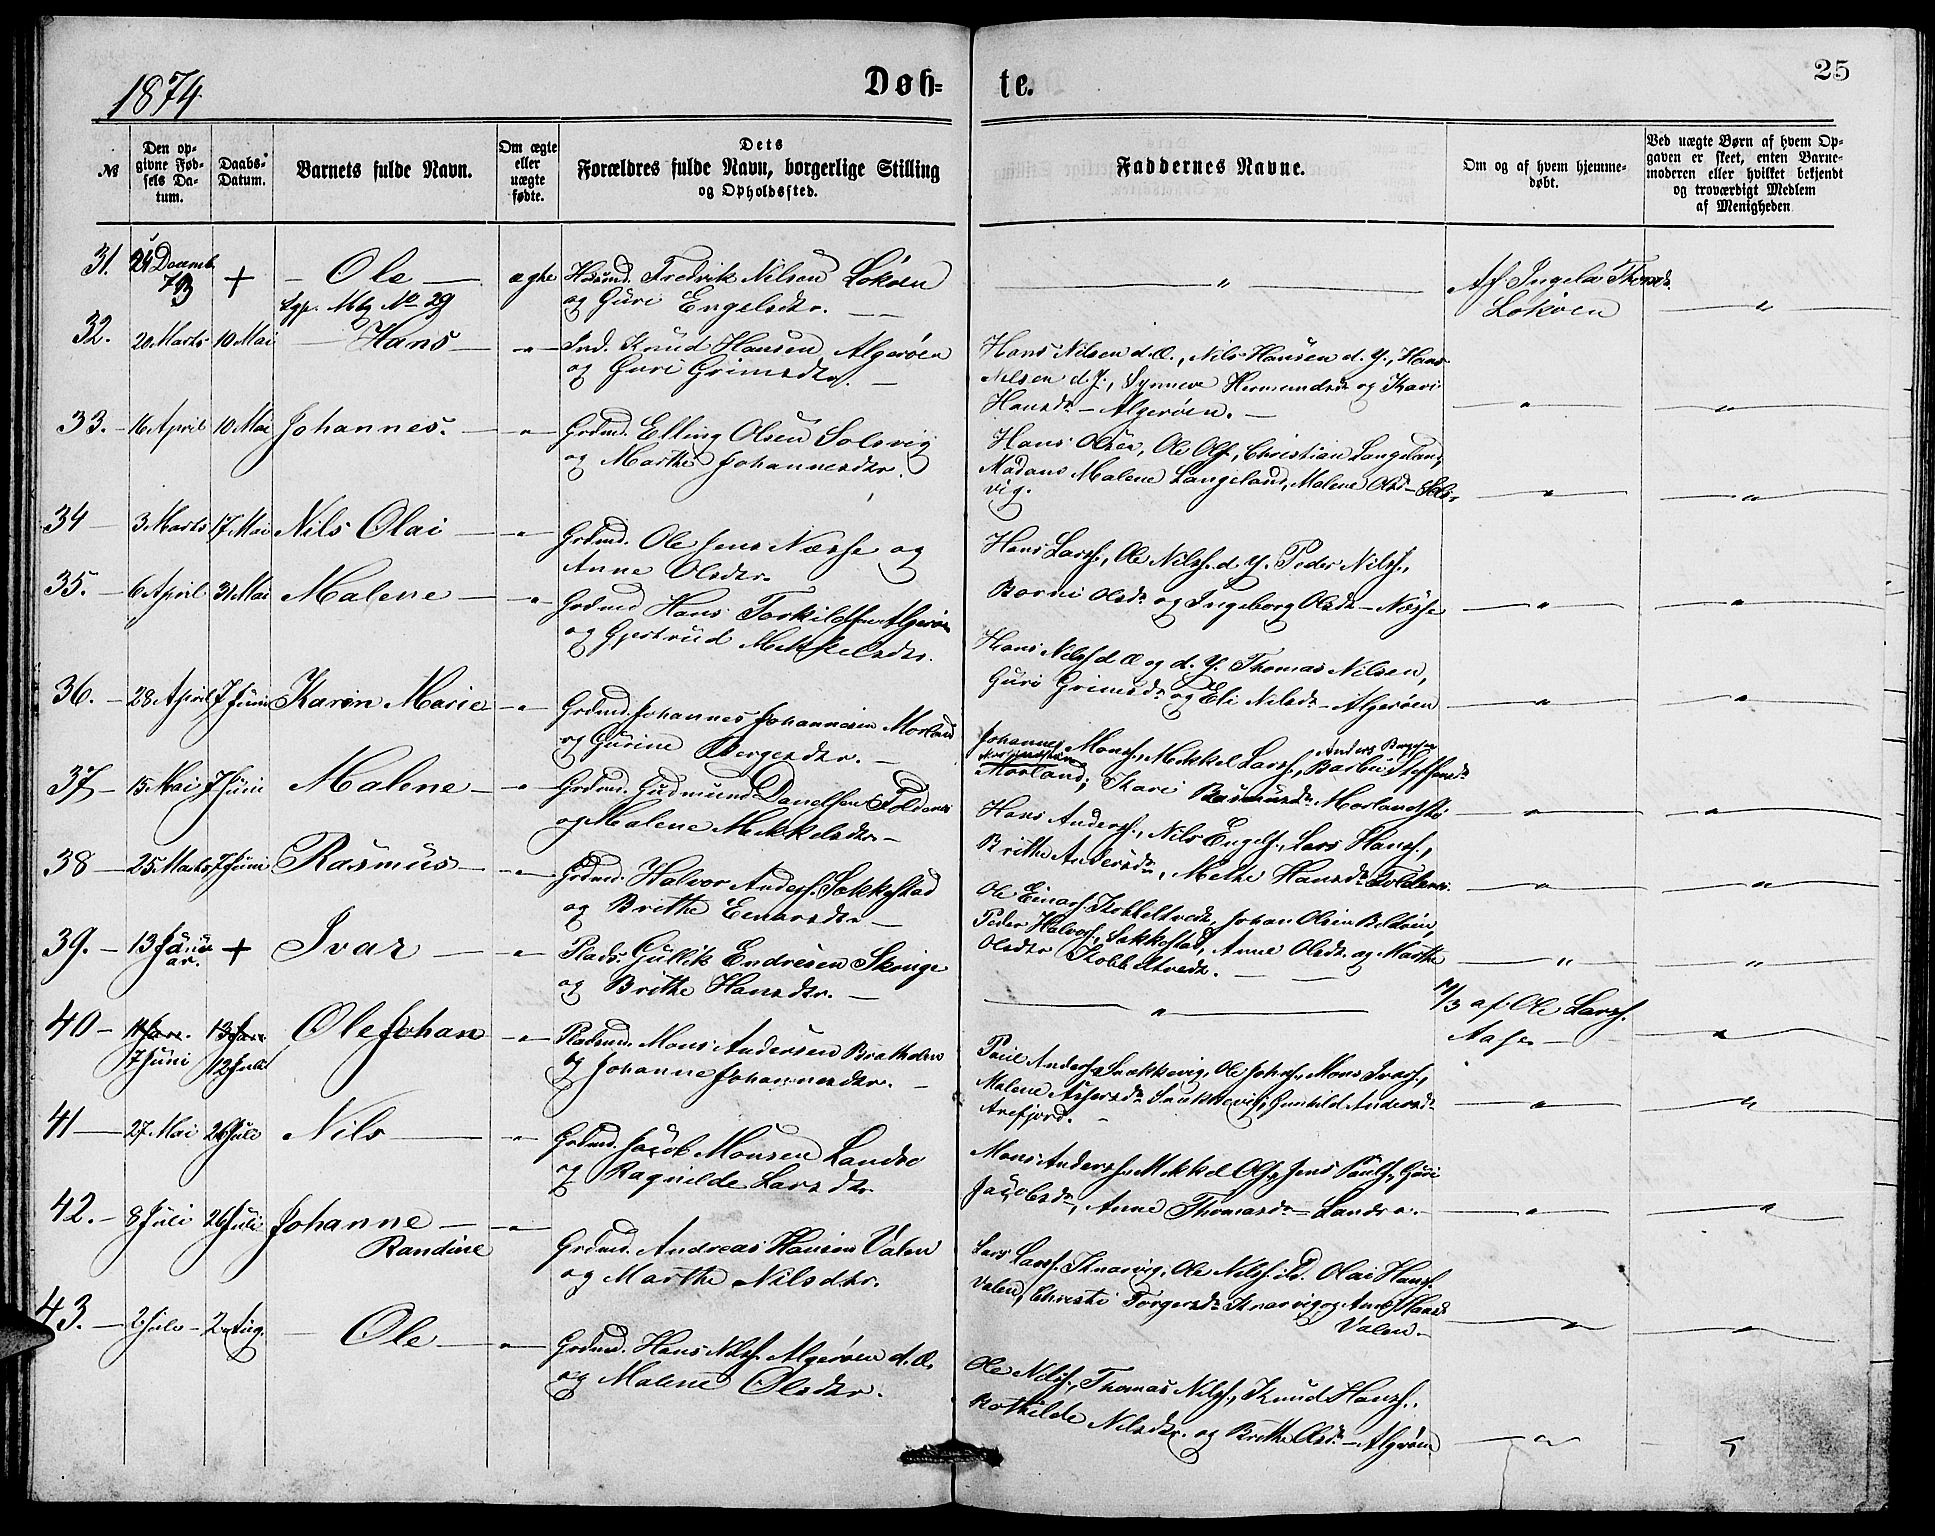 1874
Døb=
te.
25
№
Den op-
givne Fød-
sels Da-
tum.
Daabs-
Datum.
Barnets fulde Navn.
Om ægte
eller
uægte
fødte.
Dets
Forældres fulde Navn, borgerlige Stilling
og Opholdssted.
Faddernes Navne.
Om og af hvem hjemme-
døbt.
Ved uægte Børn af hvem Op-
gaven er skeet, enten Barne-
moderen eller hvilket bekjendt
og troværdigt Medlem
af Menigheden
31. Decemb. 73 + Ole ægte Husmd. Fredrik Nilsen Løkøen
og Guri Engelsdtr.
Af Ingela Thomsdr.
Løkøen
No 29
32. 20 Marts 10 Mai Hans " Ind. Knud Hansen Algerøen
og Guri Grimsdtr.
Hans Nilsen d.Æ., Nils Hansen d.Y., Hans
Nilsen d.Y., Synneve Hermundsdr og Kari
Hansdr - Algerøen.
33. 16 April 10 Mai Johannes. " Grdmd. Elling Olsen Solsvig
og Marthe Johannesdtr.
Hans Olsen, Ole Olss., Christian Langeland,
Madame Malene Langeland, Malene Olsd - Sols-
vig.
34 3 Marts 17 Mai Nils Olai " Grdmd. Ole Jens Næsse og
Anne Olsdtr.
Hans Larss., Ole Nilss. d.Y. Peder Nilss.,
Olsdr og Ingeborg Olsdr - Næsse
35. 6 April 31 Mai Malene " Grdmd Hans Torkildsen Algerøen
og Gjertrud Mikkelsdtr.
Hans Nilss d Æ og d.Y. Thomas Nilsen,
Guri Grimsdr og Eli Nilsdr - Algerøen
36. 28 April 7 Juni Karen Marie " Grdmd. Johannes Johannesen Morland
og Gurine Bergesdtr.
Johannes Monss., Mikkel Larss., Anders
Morland; Kari Rasmusdr
37 15 Mai 7 Juni Malene " Grdmd. Gudmund Danielsen Toldnes
og Malene Mikkelsdtr.
Hans Anderss., Nils Engelss., Lars Hanss.,
Brithe Andersdr, Mette Hansdr Toldnes.
38 25 Marts 7 Juni Rasmus " Grdmd. Halvor Anderss. Sekkestad
og Brithe Einarsdtr
Ole Einarss. Kobbeltvedt, Johan Olsen
Peder Halvorss. Sekkestad, Anne Olsdr. og Marthe
Olsdtr Kobbeltvedt.
39. 13 Januar. + Ivar " Plads. Gullik Endresen Skouge
og Brithe Hansdtr.
af Ole Larss.
40 17 Juni 12 Juli Ole Johan " Pladsmd. Mons Andersen Bratholm
og Johanne Johannesdtr.
Anderss. Snekkevig, Ole Johs., Mons Ivarss.,
Malene Snekkevig, Gunhild Andersdr
Arefjord.
41 27 Mai 26 Juli Nils " Grdmd. Jacob Monsen Landro
og Ragnilde Larsdtr
Mons Anderss. Mikkel Olss., Jens Paulss., Guri
Jacobsdr, Anne Thomasdr - Landro.
42. 8 Juli 26 Juli Johanne
Randine " Grdmd. Andreas Hansen Valen
og Marthe Nilsdtr.
Lars Larss. Knarvig, Ole Nilss. Olai Hanss.
Valen, Christi Torgersdr Knarvig og Anne Hansd
Valen.
43. 2 Juli 2 Aug. Ole " Grdmd. Hans Nilss. Algerøen d.Æ.
og Malene Olsdtr.
Ole Nilss., Thomas Nilss., Knud Hanss.,
Nilsdtr. og Brithe Olsdr. - Algerøen